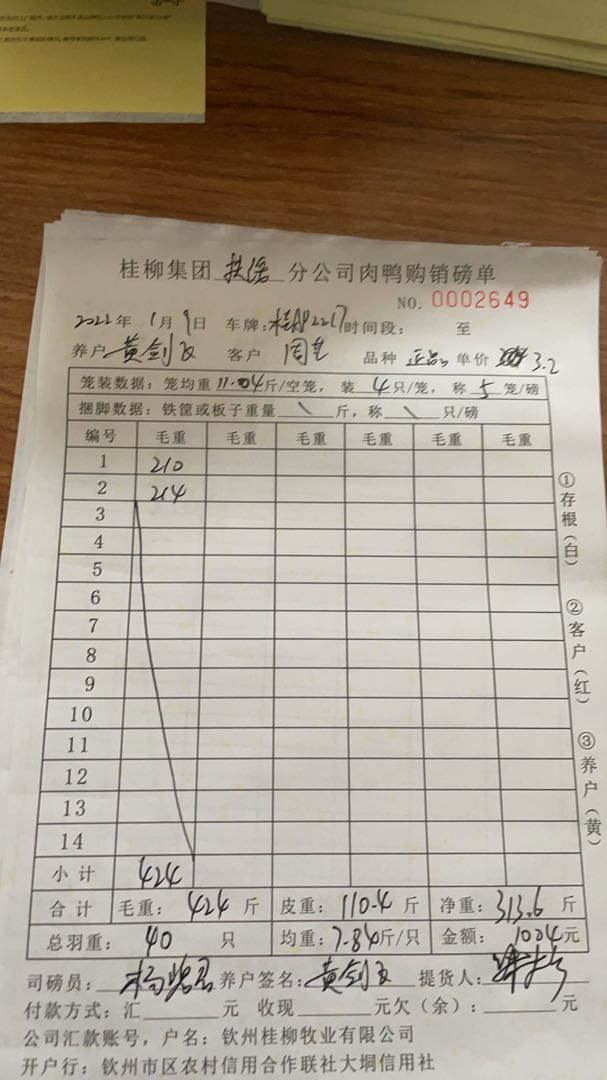 桂柳集团 扶绥 分公司肉鸭购销磅单
NO. 0002649
2022年 1月9日 车牌: 时间段: 至
养户 黄剑 客户 周 品种 正品 单价 3.2
笼装数据: 笼均重11.04斤/空笼, 装 4只/笼, 称 5 笼/磅
捆脚数据: 铁筐或板子重量 \ 斤, 称 \ 只/磅
编号 毛重 毛重 毛重 毛重 毛重 毛重
1 210
2 214
3
4
5
6
7
8
9
10
11
12
13
14
小计 424
合计 毛重: 424 斤 皮重: 110.4 斤 净重: 313.6 斤
总羽重: 40 只 均重: 7.84斤/只 金额: 1004元
司磅员: 杨 养户签名: 黄剑 提货人:
付款方式: 汇 元 收现 元欠(余): 元
公司汇款账号, 户名: 钦州桂柳牧业有限公司
开户行: 钦州市区农村信用合作联社大垌信用社
①存根(白)
②客户(红)
③养户(黄)